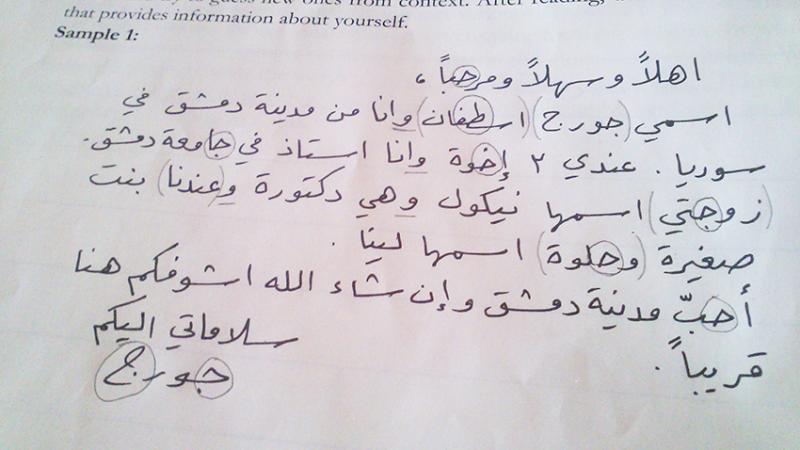 to guess new ones from context. After reading,
that provides information about yourself.
Sample 1:
اهلاً وسهلاً ومرحباً،
اسمي (جورج) (اسطفان) وانا من مدينة دمشق في
سوريا. عندي ٢ إخوة وانا استاذ في جامعة دمشق.
(زوجتي) اسمها نيكول وهي دكتورة و(عندنا) بنت
صغيرة (وحلوة) اسمها لينا.
أحبّ مدينة دمشق وإن شاء الله اشوفكم هنا
قريباً.
سلاماتي اليكم
جورج